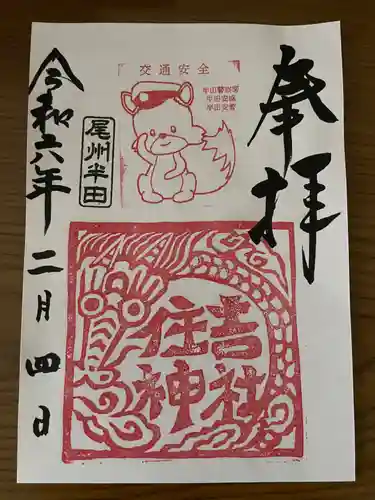 奉拝
交通安全
半田警察署
半田安協
尾州半田
住吉
神社
令和六年 二月 四日